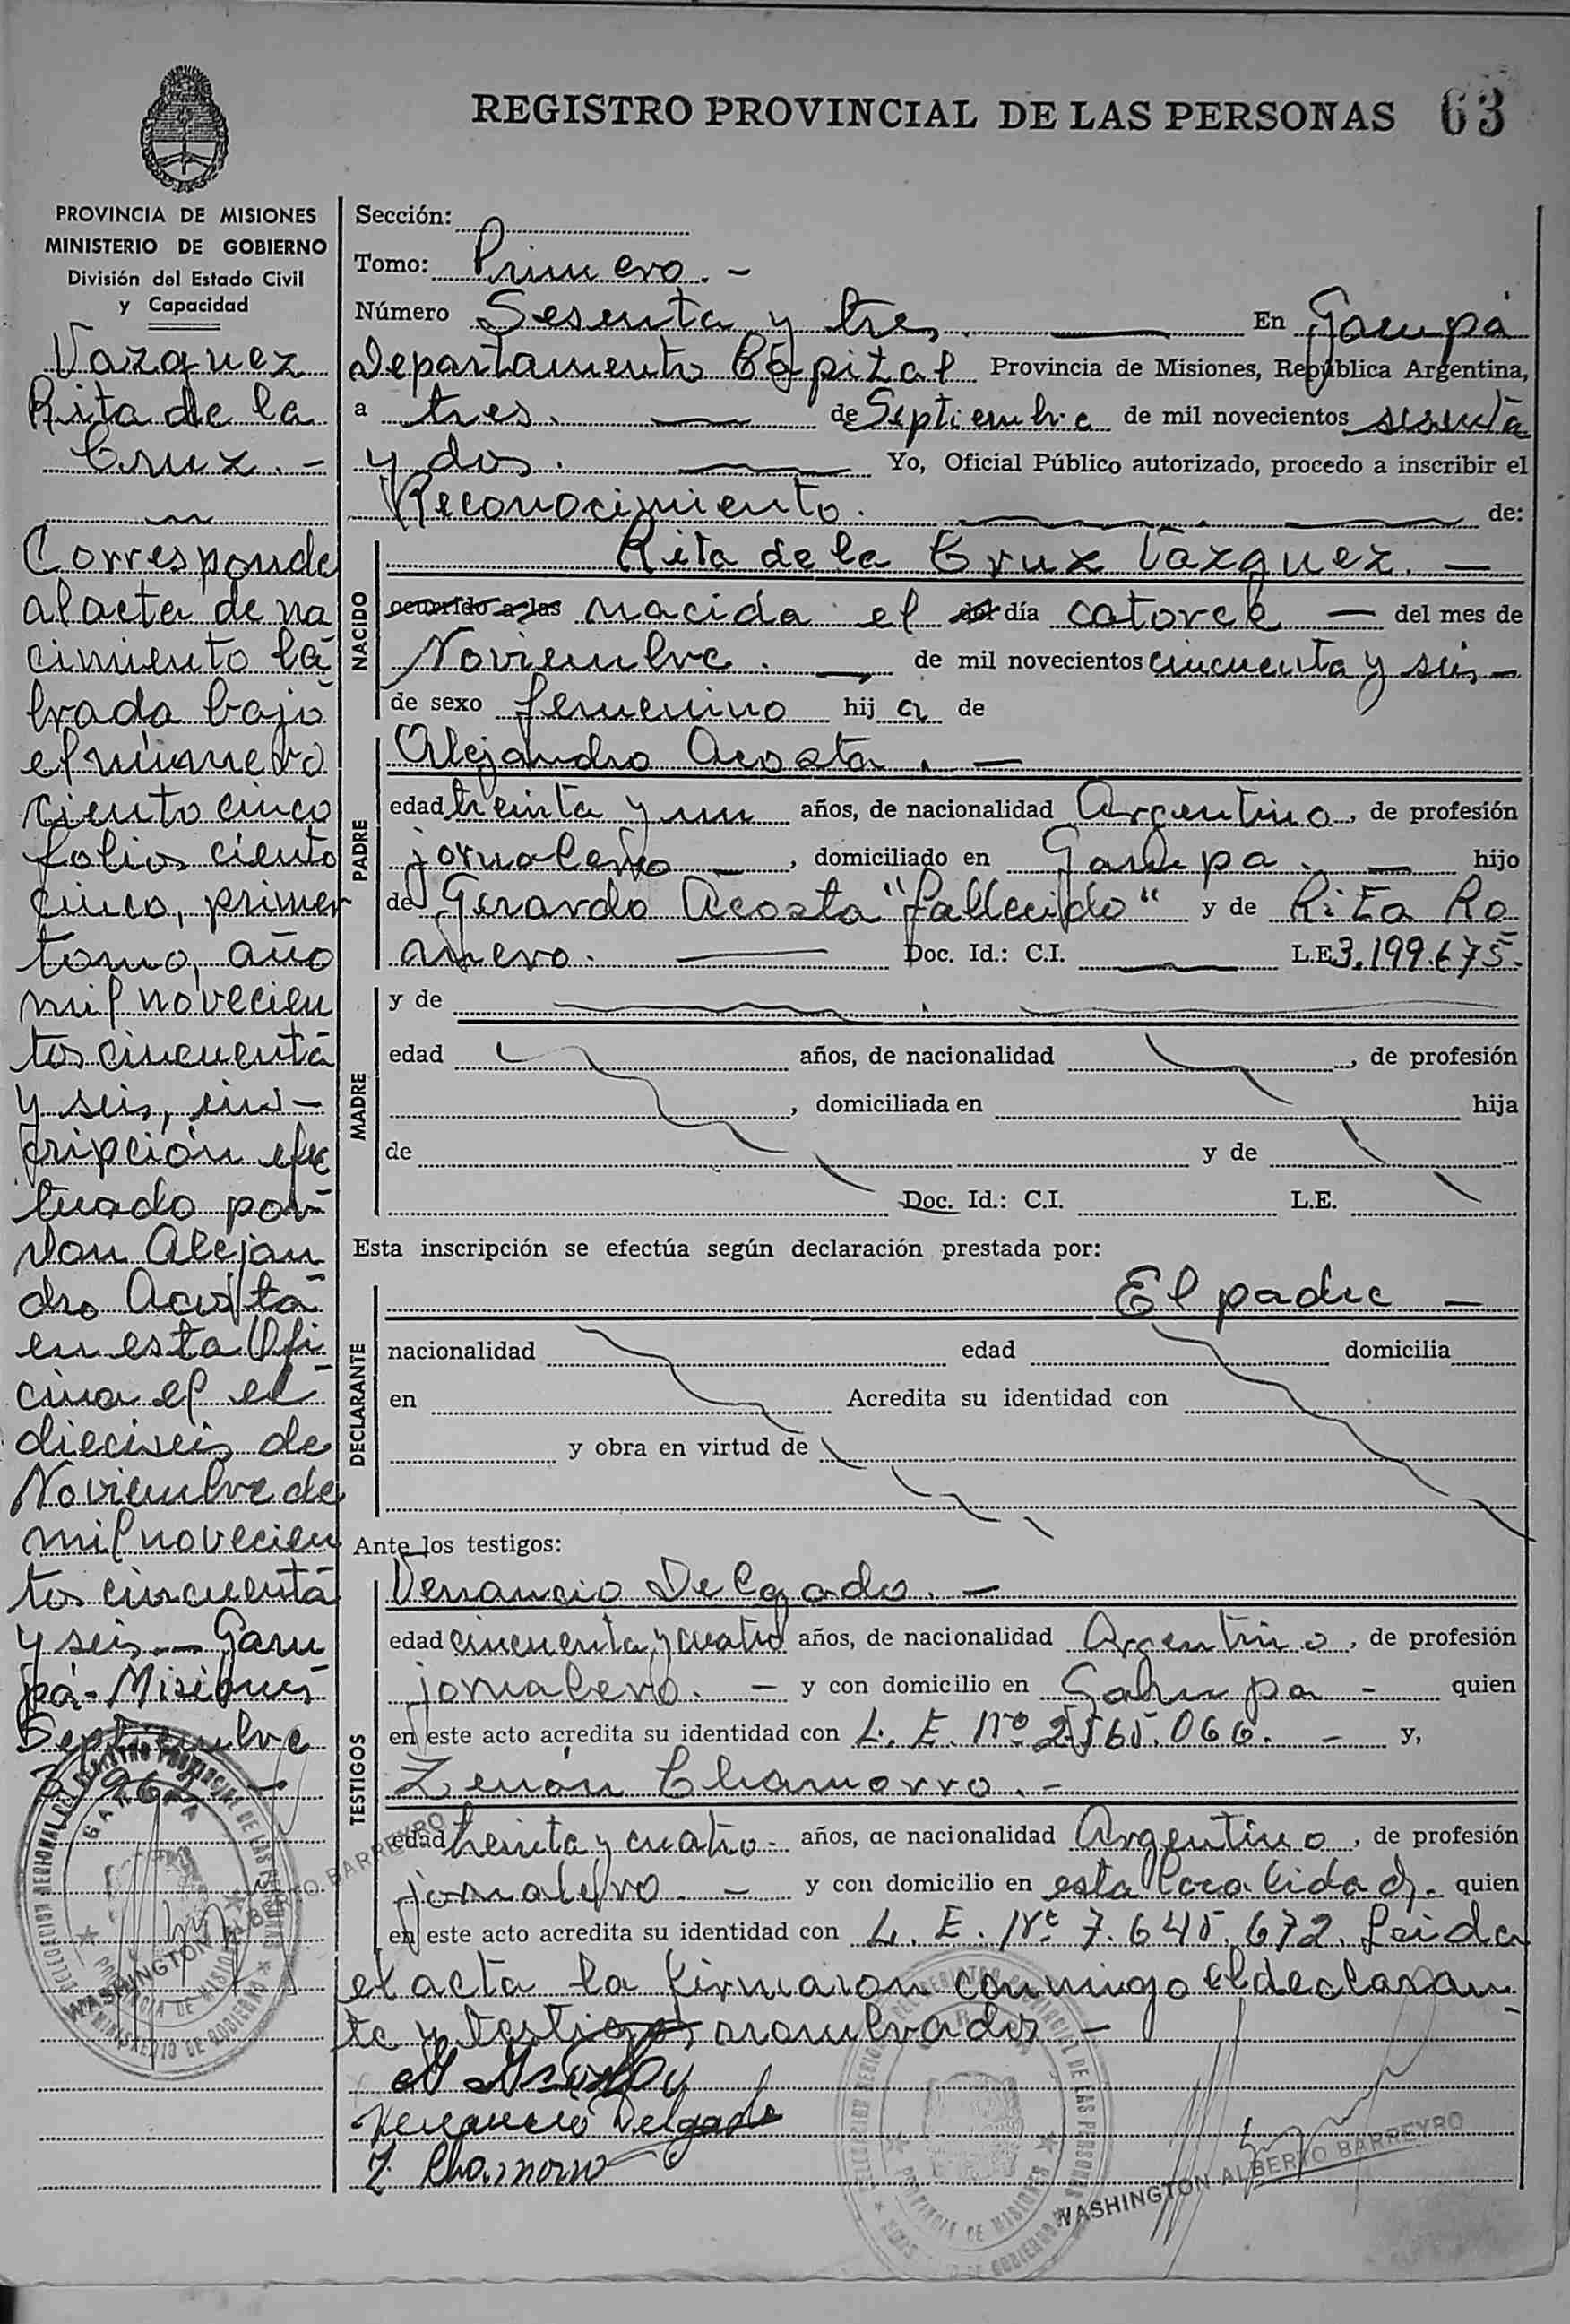 REGISTRO PROVINCIAL DE LAS PERSONAS 63
PROVINCIA DE MISIONES
MINISTERIO DE GOBIERNO
División del Estado Civil
y Capacidad
Vazquez
Rita de la
Cruz. -
Corresponde
al acta de na
cimiento la
brada bajo
el número
ciento cinco
folios ciento
cinco, primer
tomo, año
mil novecien
tos cincuenta
y seis, ins-
cripción efec
tuado por
don Alejan
dro Acosta
en esta Ofi
cina el el
dieciseis de
Noviembre de
mil novecien
tos cincuenta
y seis.- Garu
pá - Misiones
Septiembre
3/962 -
Sección:
Tomo: Primero. -
Número Sesenta y tres. En Garupá
Departamento Capital Provincia de Misiones, República Argentina,
a tres. de Septiembre de mil novecientos sesenta
y dos. Yo, Oficial Público autorizado, procedo a inscribir el
Reconocimiento. de:
NACIDO
Rita de la Cruz Vazquez. -
ocurrido a las nacida el del día catorce - del mes de
Noviembre. de mil novecientos cincuenta y seis -
de sexo femenino hij a de
PADRE
Alejandro Acosta. -
edad treinta y un años, de nacionalidad Argentino, de profesión
jornalero, domiciliado en Garupa. - hijo
de Gerardo Acosta "fallecido" y de Rita Ro
Doc. Id.: C.I. L.E. 3.199.675.
MADRE
y de
edad años, de nacionalidad , de profesión
, domiciliada en hija
de y de
Doc. Id.: C.I. L.E.
Esta inscripción se efectúa según declaración prestada por:
DECLARANTE
El padre -
nacionalidad edad domicilia
en Acredita su identidad con
y obra en virtud de
Ante los testigos:
TESTIGOS
Venancio Delgado. -
edad cincuenta y cuatro años, de nacionalidad Argentino, de profesión
jornalero. - y con domicilio en Garupa - quien
en este acto acredita su identidad con L. E. Nº 2.565.066. - y,
Zenón Chamorro. -
edad treinta y cuatro - años, de nacionalidad Argentino, de profesión
jornalero. - y con domicilio en esta localidad. quien
en este acto acredita su identidad con L. E. Nº 7.645.672. Leida
el acta la firmaron conmigo el declaran
te y testigos nombrados -
Venancio Delgado
Z. Chamorro
WASHINGTON ALBERTO BARREYRO
WASHINGTON ALBERTO BARREYRO
DELEGACION REGIONAL DEL REGISTRO PROVINCIAL DE LAS PERSONAS
GARUPA
PROVINCIA DE MISIONES
MINISTERIO DE GOBIERNO